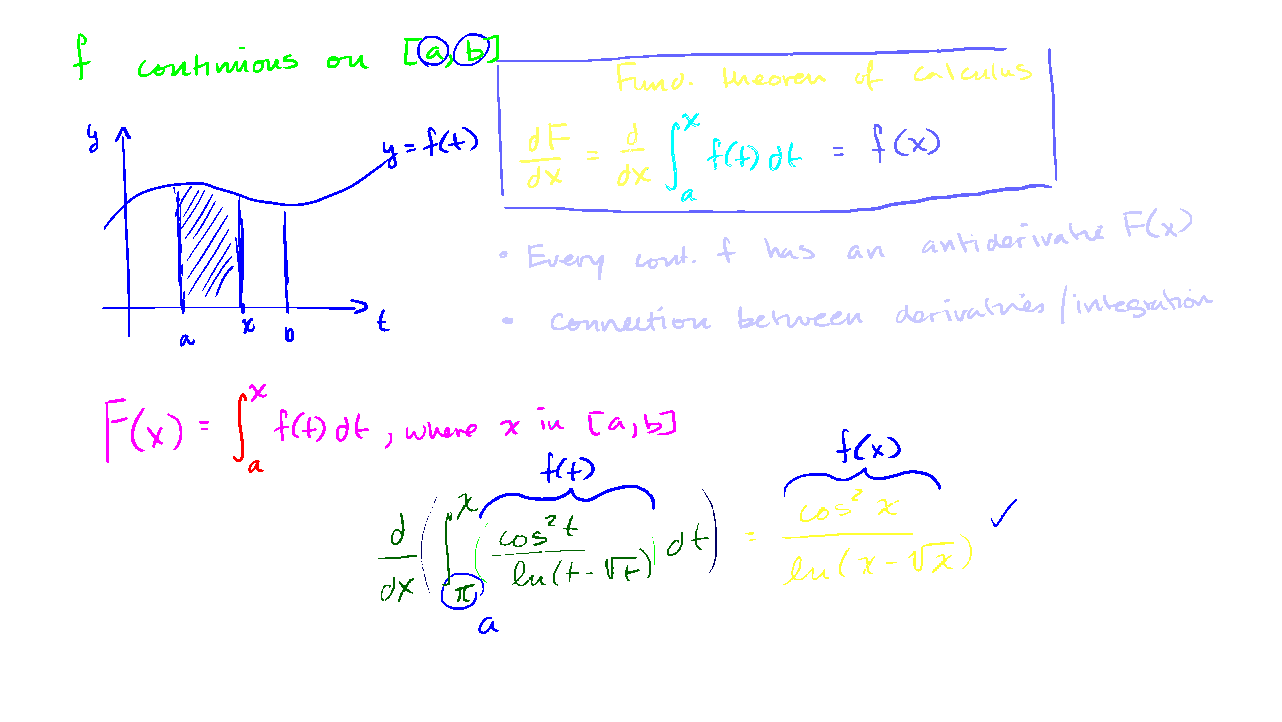 f continuous on [a,b]
Fund. theorem of calculus
dF/dx = d/dx ∫_a^x f(t) dt = f(x)
y
y = f(t)
a x b t
• Every cont. f has an antiderivative F(x)
• Connection between derivatives/integration
F(x) = ∫_a^x f(t) dt, where x in [a,b]
f(t) f(x)
d/dx (∫_π^x (cos² t / ln(t - √t)) dt) = cos² x / ln(x - √x) ✓
a